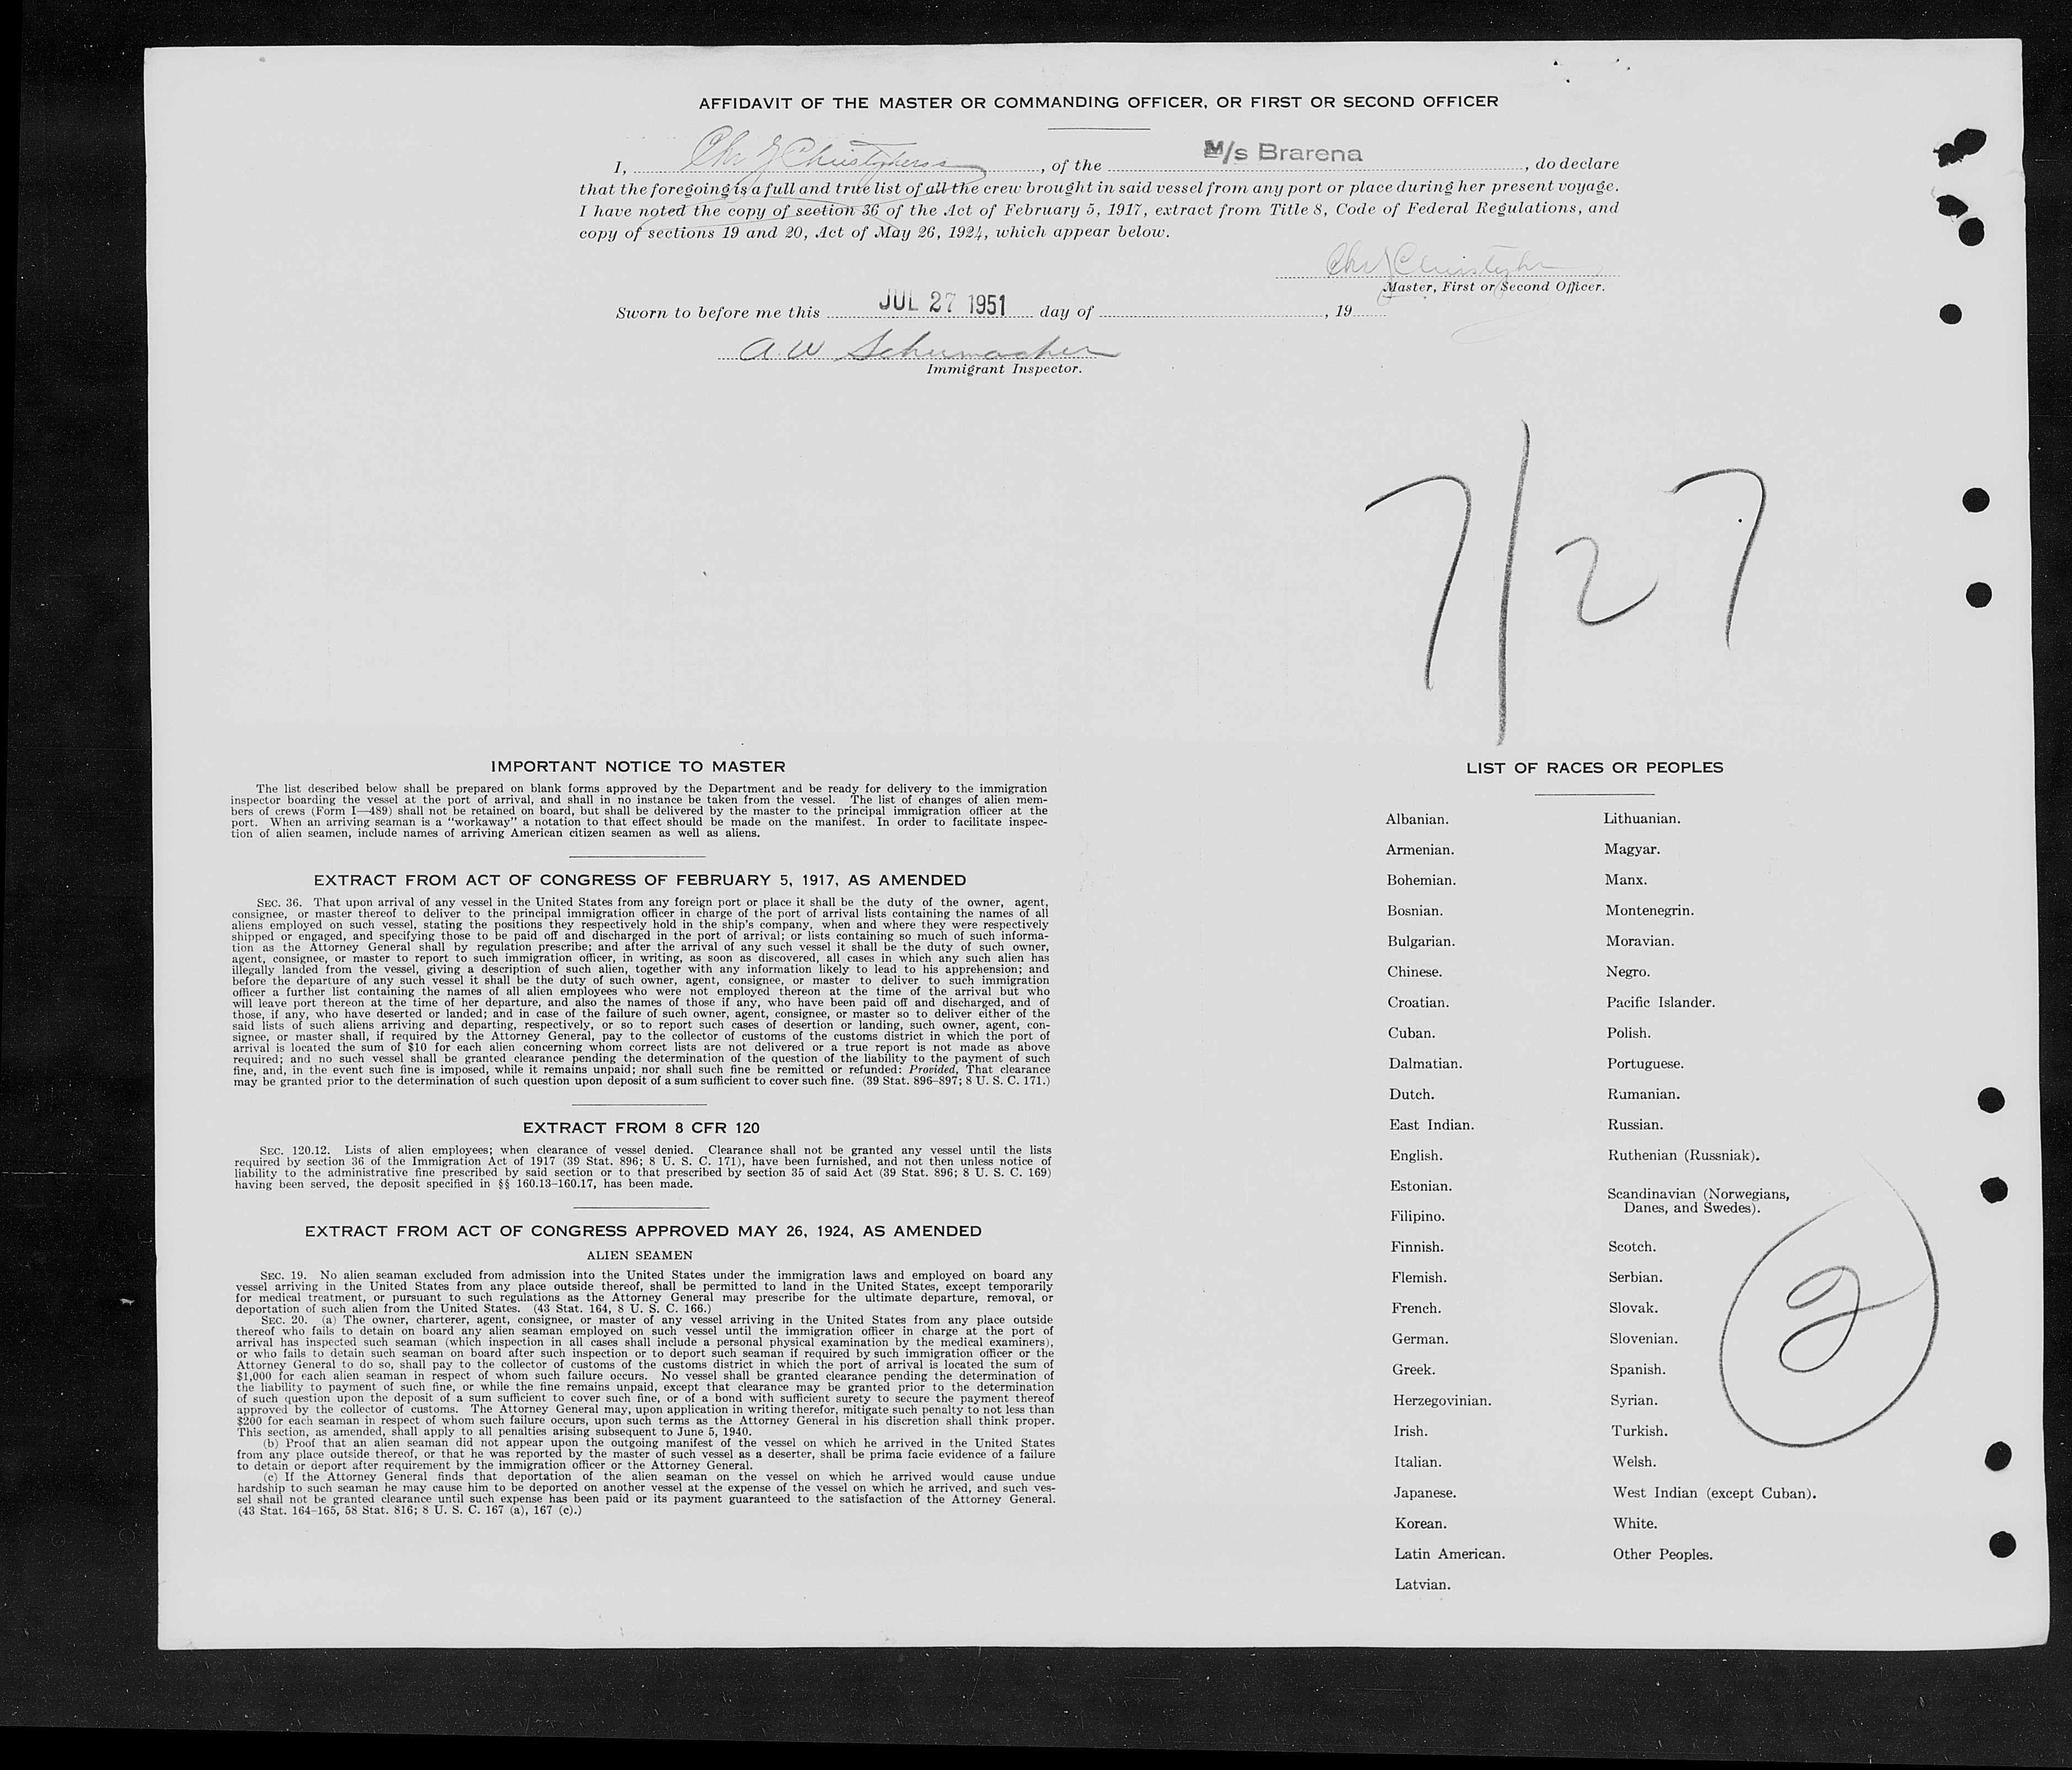 AFFIDAVIT OF THE MASTER OR COMMANDING OFFICER, OR FIRST OR SECOND OFFICER
I, , of the M/s Brarena , do declare
that the foregoing is a full and true list of all the crew brought in said vessel from any port or place during her present voyage.
I have noted the copy of section 36 of the Act of February 5, 1917, extract from Title 8, Code of Federal Regulations, and
copy of sections 19 and 20, Act of May 26, 1924, which appear below.
Master, First or Second Officer.
Sworn to before me this JUL 27 1951 day of , 19
A W Schumacher
Immigrant Inspector.
7/27
IMPORTANT NOTICE TO MASTER
The list described below shall be prepared on blank forms approved by the Department and be ready for delivery to the immigration
inspector boarding the vessel at the port of arrival, and shall in no instance be taken from the vessel. The list of changes of alien mem-
bers of crews (Form I—489) shall not be retained on board, but shall be delivered by the master to the principal immigration officer at the
port. When an arriving seaman is a "workaway" a notation to that effect should be made on the manifest. In order to facilitate inspec-
tion of alien seamen, include names of arriving American citizen seamen as well as aliens.
EXTRACT FROM ACT OF CONGRESS OF FEBRUARY 5, 1917, AS AMENDED
SEC. 36. That upon arrival of any vessel in the United States from any foreign port or place it shall be the duty of the owner, agent,
consignee, or master thereof to deliver to the principal immigration officer in charge of the port of arrival lists containing the names of all
aliens employed on such vessel, stating the positions they respectively hold in the ship's company, when and where they were respectively
shipped or engaged, and specifying those to be paid off and discharged in the port of arrival; or lists containing so much of such informa-
tion as the Attorney General shall by regulation prescribe; and after the arrival of any such vessel it shall be the duty of such owner,
agent, consignee, or master to report to such immigration officer, in writing, as soon as discovered, all cases in which any such alien has
illegally landed from the vessel, giving a description of such alien, together with any information likely to lead to his apprehension; and
before the departure of any such vessel it shall be the duty of such owner, agent, consignee, or master to deliver to such immigration
officer a further list containing the names of all alien employees who were not employed thereon at the time of the arrival but who
will leave port thereon at the time of her departure, and also the names of those if any, who have been paid off and discharged, and of
those, if any, who have deserted or landed; and in case of the failure of such owner, agent, consignee, or master so to deliver either of the
said lists of such aliens arriving and departing, respectively, or so to report such cases of desertion or landing, such owner, agent, con-
signee, or master shall, if required by the Attorney General, pay to the collector of customs of the customs district in which the port of
arrival is located the sum of $10 for each alien concerning whom correct lists are not delivered or a true report is not made as above
required; and no such vessel shall be granted clearance pending the determination of the question of the liability to the payment of such
fine, and, in the event such fine is imposed, while it remains unpaid; nor shall such fine be remitted or refunded: Provided, That clearance
may be granted prior to the determination of such question upon deposit of a sum sufficient to cover such fine. (39 Stat. 896–897; 8 U. S. C. 171.)
EXTRACT FROM 8 CFR 120
SEC. 120.12. Lists of alien employees; when clearance of vessel denied. Clearance shall not be granted any vessel until the lists
required by section 36 of the Immigration Act of 1917 (39 Stat. 896; 8 U. S. C. 171), have been furnished, and not then unless notice of
liability to the administrative fine prescribed by said section or to that prescribed by section 35 of said Act (39 Stat. 896; 8 U. S. C. 169)
having been served, the deposit specified in §§ 160.13–160.17, has been made.
EXTRACT FROM ACT OF CONGRESS APPROVED MAY 26, 1924, AS AMENDED
ALIEN SEAMEN
SEC. 19. No alien seaman excluded from admission into the United States under the immigration laws and employed on board any
vessel arriving in the United States from any place outside thereof, shall be permitted to land in the United States, except temporarily
for medical treatment, or pursuant to such regulations as the Attorney General may prescribe for the ultimate departure, removal, or
deportation of such alien from the United States. (43 Stat. 164, 8 U. S. C. 166.)
SEC. 20. (a) The owner, charterer, agent, consignee, or master of any vessel arriving in the United States from any place outside
thereof who fails to detain on board any alien seaman employed on such vessel until the immigration officer in charge at the port of
arrival has inspected such seaman (which inspection in all cases shall include a personal physical examination by the medical examiners),
or who fails to detain such seaman on board after such inspection or to deport such seaman if required by such immigration officer or the
Attorney General to do so, shall pay to the collector of customs of the customs district in which the port of arrival is located the sum of
$1,000 for each alien seaman in respect of whom such failure occurs. No vessel shall be granted clearance pending the determination of
the liability to payment of such fine, or while the fine remains unpaid, except that clearance may be granted prior to the determination
of such question upon the deposit of a sum sufficient to cover such fine, or of a bond with sufficient surety to secure the payment thereof
approved by the collector of customs. The Attorney General may, upon application in writing therefor, mitigate such penalty to not less than
$200 for each seaman in respect of whom such failure occurs, upon such terms as the Attorney General in his discretion shall think proper.
This section, as amended, shall apply to all penalties arising subsequent to June 5, 1940.
(b) Proof that an alien seaman did not appear upon the outgoing manifest of the vessel on which he arrived in the United States
from any place outside thereof, or that he was reported by the master of such vessel as a deserter, shall be prima facie evidence of a failure
to detain or deport after requirement by the immigration officer or the Attorney General.
(c) If the Attorney General finds that deportation of the alien seaman on the vessel on which he arrived would cause undue
hardship to such seaman he may cause him to be deported on another vessel at the expense of the vessel on which he arrived, and such ves-
sel shall not be granted clearance until such expense has been paid or its payment guaranteed to the satisfaction of the Attorney General.
(43 Stat. 164–165, 58 Stat. 816; 8 U. S. C. 167 (a), 167 (c).)
LIST OF RACES OR PEOPLES
Albanian.
Armenian.
Bohemian.
Bosnian.
Bulgarian.
Chinese.
Croatian.
Cuban.
Dalmatian.
Dutch.
East Indian.
English.
Estonian.
Filipino.
Finnish.
Flemish.
French.
German.
Greek.
Herzegovinian.
Irish.
Italian.
Japanese.
Korean.
Latin American.
Latvian.
Lithuanian.
Magyar.
Manx.
Montenegrin.
Moravian.
Negro.
Pacific Islander.
Polish.
Portuguese.
Rumanian.
Russian.
Ruthenian (Russniak).
Scandinavian (Norwegians,
Danes, and Swedes).
Scotch.
Serbian.
Slovak.
Slovenian.
Spanish.
Syrian.
Turkish.
Welsh.
West Indian (except Cuban).
White.
Other Peoples.
2